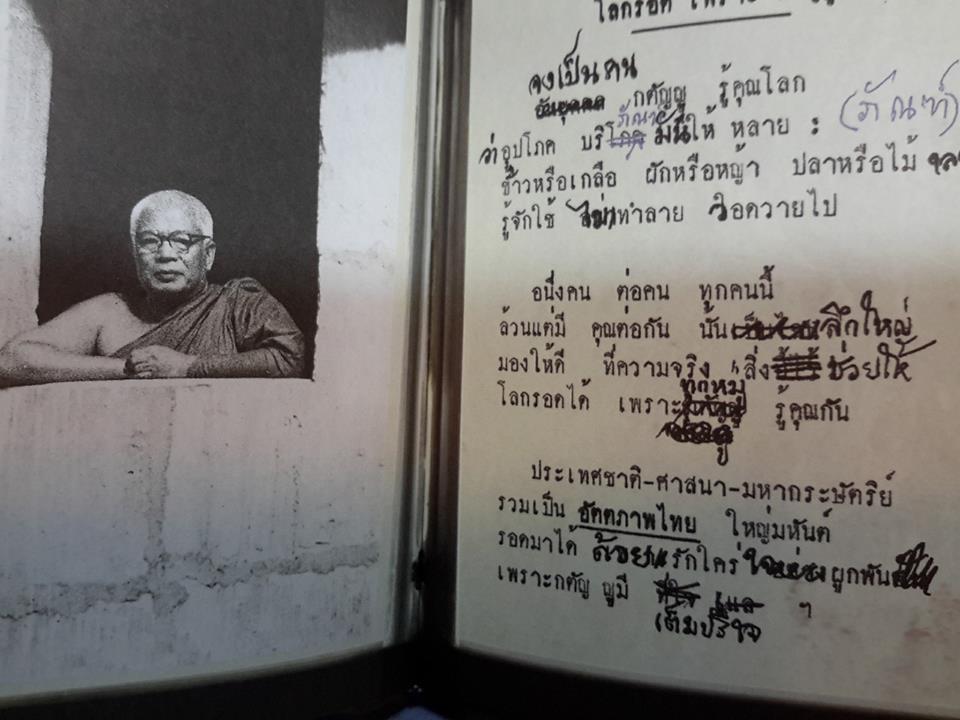 โลกรอด เพราะ
จงเป็นคน
กตัญญู รู้คุณโลก
ว่าอุปโภค บริ ภัณฑ์ มันให้ หลาย : (ภัณฑ์)
ข้าวหรือเกลือ ผักหรือหญ้า ปลาหรือไม้
รู้จักใช้ ไม่ทำลาย วอดวายไป
อนึ่งคน ต่อคน ทุกคนนี้
ล้วนแต่มี คุณต่อกัน นั้น ลึกใหญ่
มองให้ดี ที่ความจริง สิ่ง ช่วยให้
ทุกหมู่
โลกรอดได้ เพราะ รู้คุณกัน
ประเทศชาติ-ศาสนา-มหากระษัตริย์
รวมเป็น อัตตภาพไทย ใหญ่มหันต์
รอดมาได้ ด้วย รักใคร่ ผูกพัน
เพราะกตัญ ญูมี ๆ
เต็มปรี่ใจ